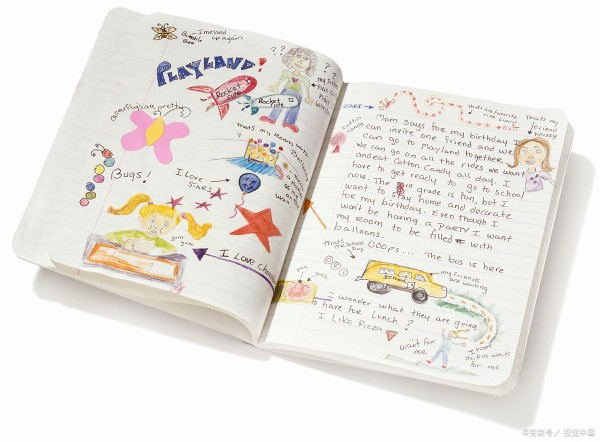 - I messed
up again
PLAYLAND!
? ?
? ?
my
Rocket
ride
Rocket
ride
Butterflys are pretty
That's my Room with
Bugs!
I Love
Stars
yum
yum
I Love
START
END
That's my
Cotton
Candy
Mom says for my birthday I
can invite one friend and we
can go to Playland together.
We can go on all the rides we want
and eat Cotton Candy all day. I
have to get ready to go to school
now. The 3rd grade is fun, but I
want to stay home and decorate
for my birthday. Even though I
won't be having a PARTY I want
my Room to be filled with
balloons.
OOPS... The bus is here
That's the
School Bus
School
my Friends
are waiting
I wonder what they are going
to have for Lunch?
I Like Pizza
wait for
me
I hope
the Bus waits
for me